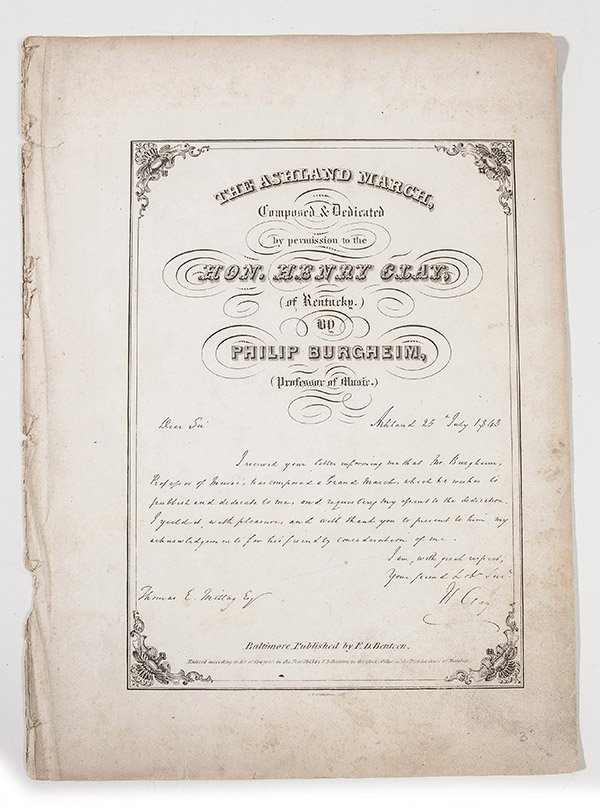 THE ASHLAND MARCH,
Composed & Dedicated
by permission to the
HON. HENRY CLAY,
(of Kentucky.)
By
PHILIP BURGHEIM,
(Professor of Music.)
Dear Sir Ashland 25th July 1843
I received your letter informing me that Mr. Burgheim,
Professor of Music, has composed a Grand March, which he wishes to
publish and dedicate to me, and requesting my assent to the dedication.
I yield it, with pleasure, and will thank you to present to him my
acknowledgements for his friendly consideration of me.
I am, with great respect,
Your friend & obt. Servt.
Thomas E. Esqr H Clay
Baltimore, Published by F. D. Benteen.
Entered according to Act of Congress in the Year 1843 by F. D. Benteen in the Clerks Office of the District Court of Maryland.